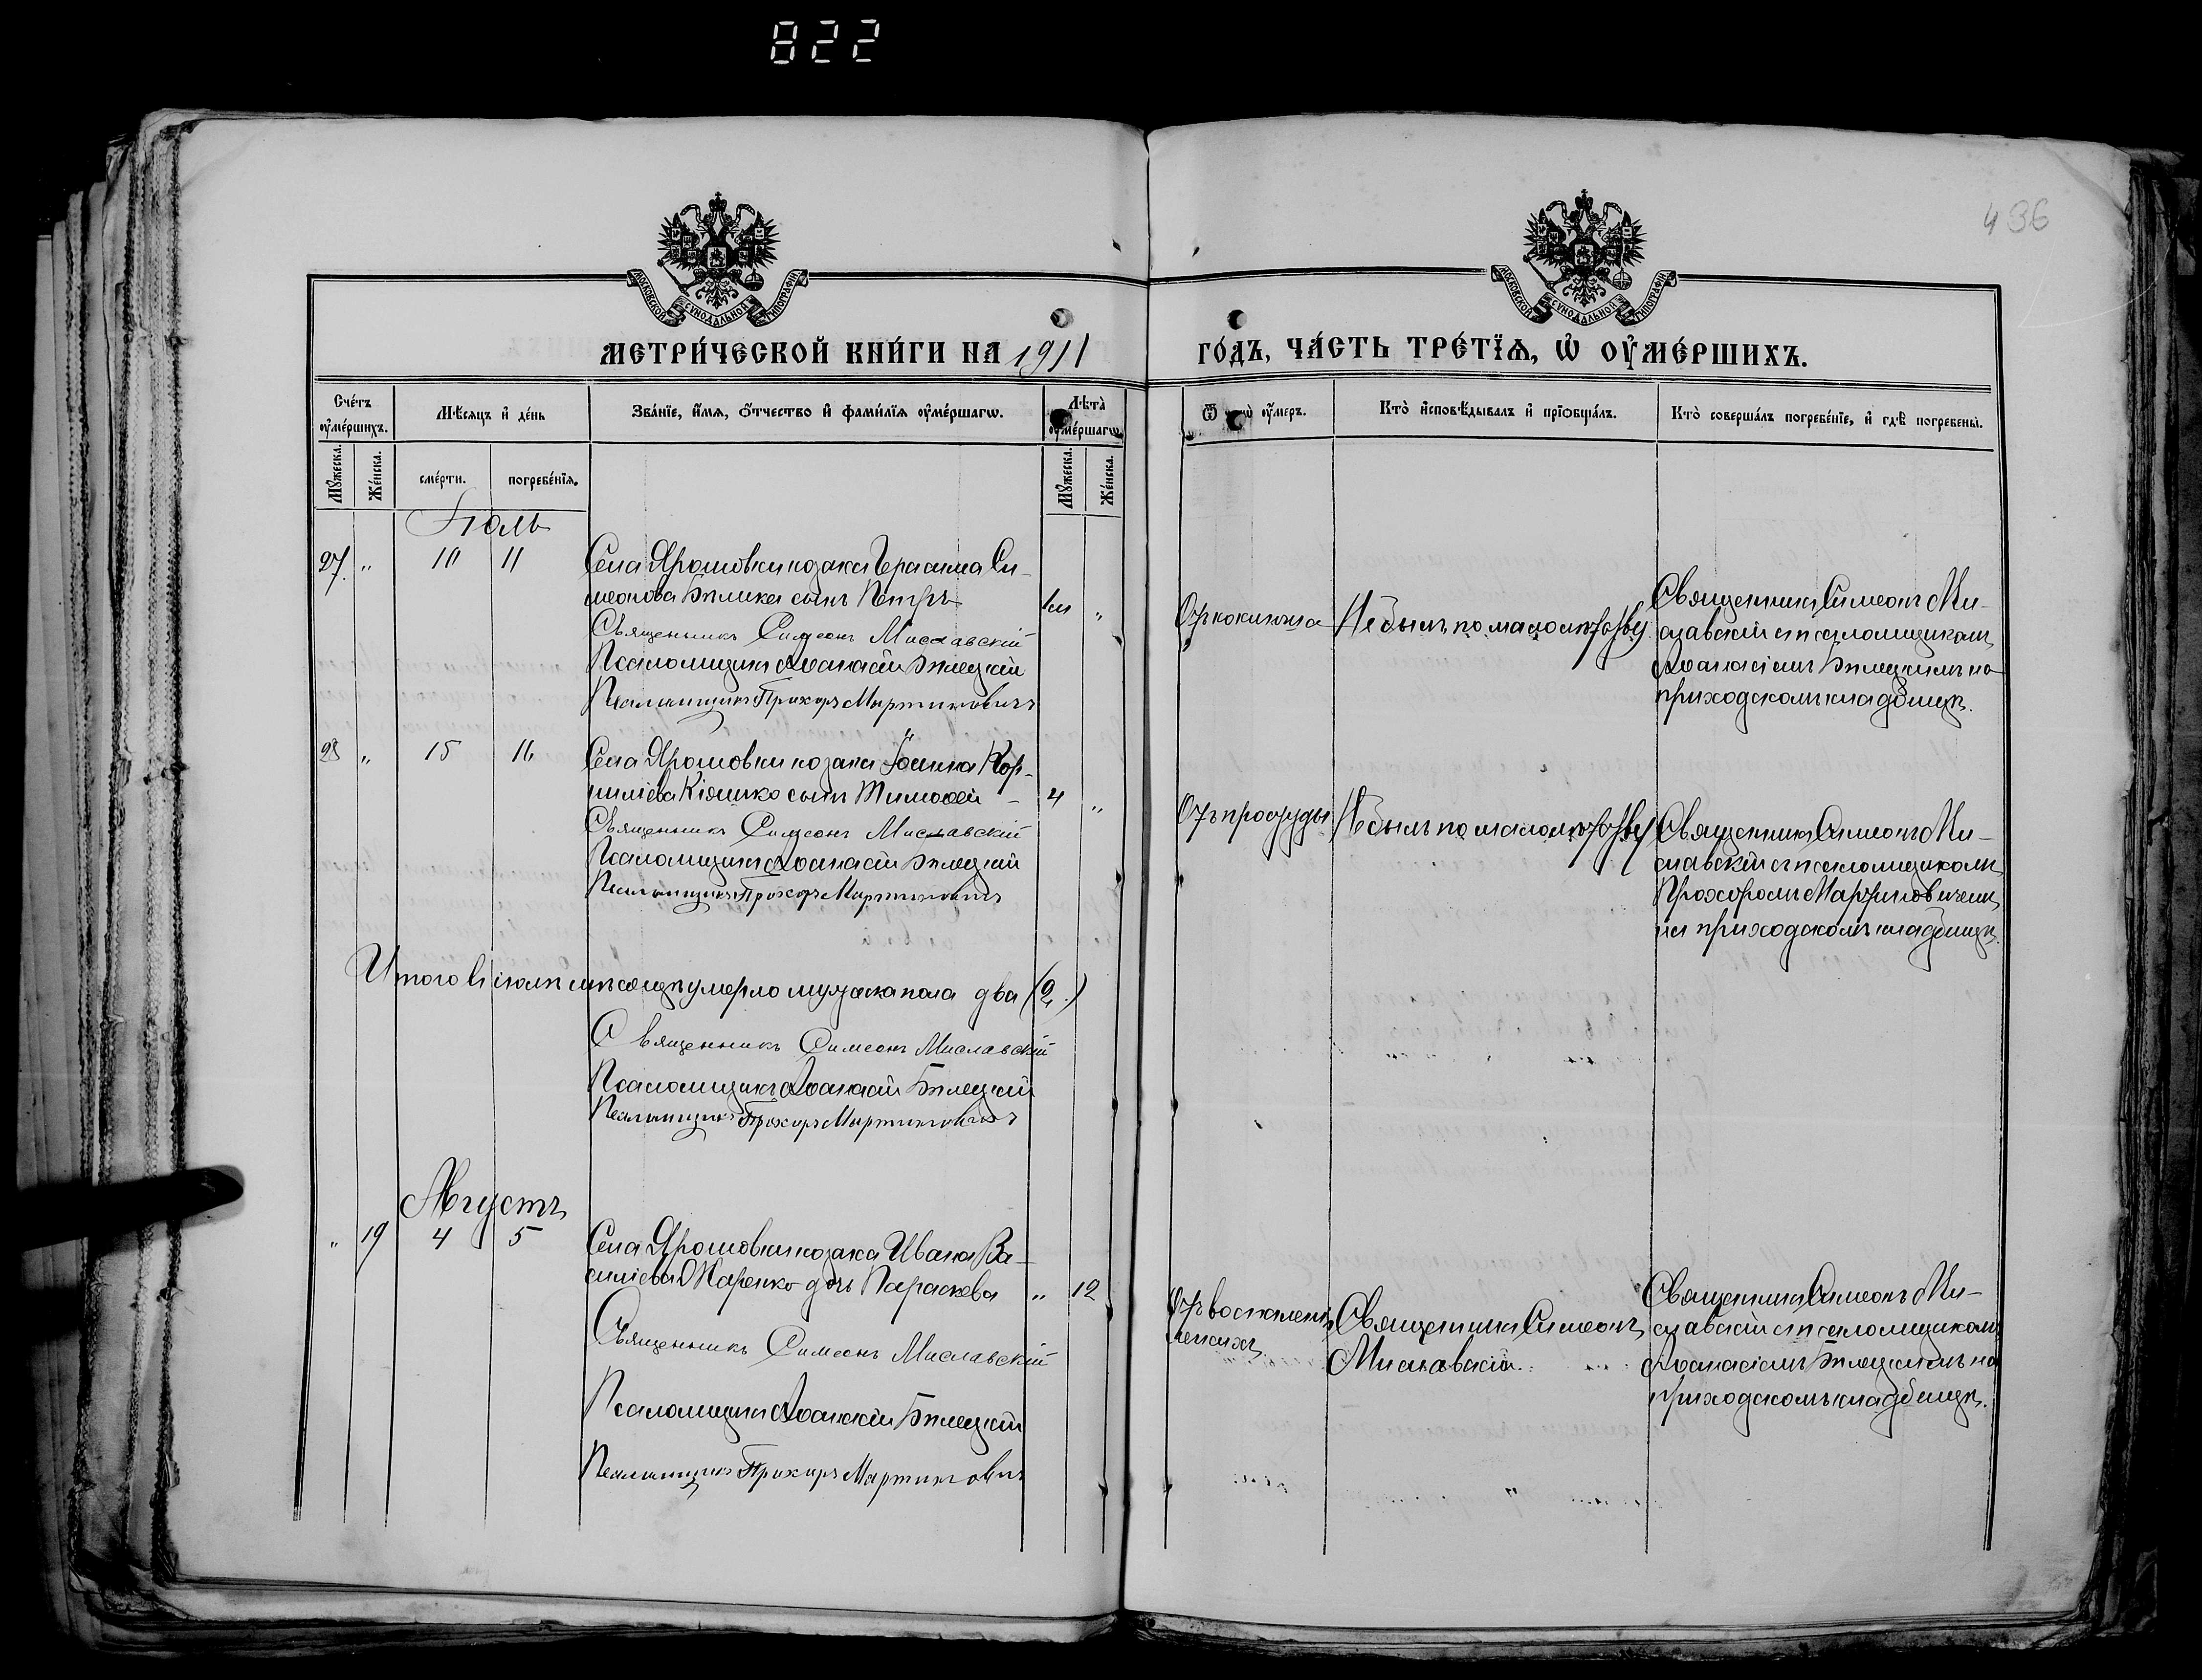 822
436
МОСКОВСКОЙ СѴНОДАЛЬНОЙ ТИПОГРАФІИ
МОСКОВСКОЙ СѴНОДАЛЬНОЙ ТИПОГРАФІИ
МЕТРИ́ЧЕСКОЙ КНИ́ГИ НА 1911
ГО́ДЪ, ЧА́СТЬ ТРЕ́ТЇѦ, Ѡ҆ ОУ҆МЕ́РШИХЪ.
Сче́тъ оу҆ме́ршихъ.
Мѣ́сяцъ и҆ де́нь
Зва́нїе, и҆́мѧ, ѻ҆́тчество и҆ фами́лїѧ оу҆ме́ршагѡ.
Лѣ̀та оу҆ме́ршагѡ.
Ѿ оу҆́меръ.
Кто̀ и҆сповѣ́дывалъ и҆ прїѡбща́лъ.
Кто̀ соверша́лъ погребе́нїе, и҆ гдѣ̀ погребены̀.
Мꙋ́жеска.
Же́нска.
сме́рти.
погребе́нїѧ.
Мꙋ́жеска.
Же́нска.
Іюль
27. " 10 11
Села Ярошовки козака Герасима Си-
меонова Билика сынъ Петръ
1м "
Священникъ Симеонъ Миславскій
Псаломщикъ Аѳанасій Билецкій
Псаломщикъ Прохоръ Мартиновичъ
Отъ коклюша
Не былъ по малолѣтству
Священникъ Симеонъ Ми-
славскій съ псаломщикомъ
Аѳанасіемъ Билецкимъ на
приходскомъ кладбищѣ.
28 " 15 16
Села Ярошовки козака Іоанна Кор-
нилієва Кіяшко сынъ Тимоѳей -
4 "
Священникъ Симеонъ Миславскій
Псаломщикъ Аѳанасій Билецкій
Псаломщикъ Прохоръ Мартиновичъ
Отъ простуды
Не былъ по малолѣтству
Священникъ Симеонъ Ми-
славскій съ псаломщикомъ
Прохоромъ Мартиновичемъ
на приходскомъ кладбищѣ.
Итого въ іюлѣ мѣсяцѣ умерло мужска пола два (2.)
Священникъ Симеонъ Миславскій
Псаломщикъ Аѳанасій Билецкій
Псаломщикъ Прохоръ Мартиновичъ
Августъ
" 19 4 5
Села Ярошовки козака Ивана Ва-
силієва дочь Параскева
" 12
Священникъ Симеонъ Миславскій
Псаломщикъ Аѳанасій Билецкій
Псаломщикъ Прохоръ Мартиновичъ
Отъ воспаленія
легкихъ
Священникъ Симеонъ
Миславскій.
Священникъ Симеонъ Ми-
славскій съ псаломщикомъ
Аѳанасіемъ Билецкимъ на
приходскомъ кладбищѣ.